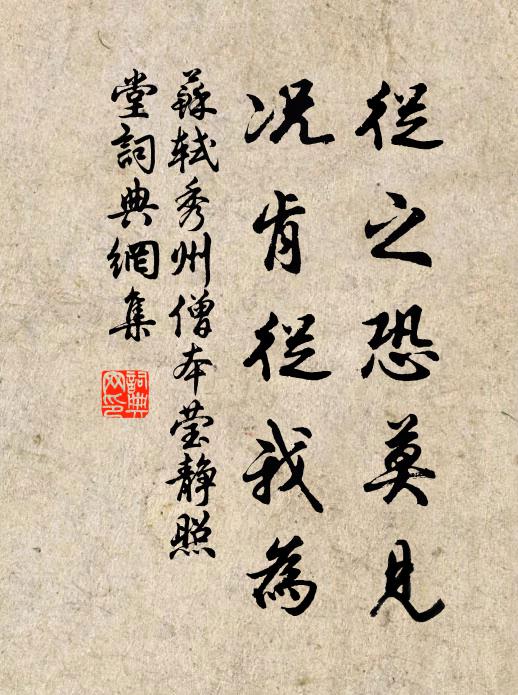 從之恐莫見
況肯從我為
蘇軾秀州僧本瑩靜照
堂詞典網集
詞典網印